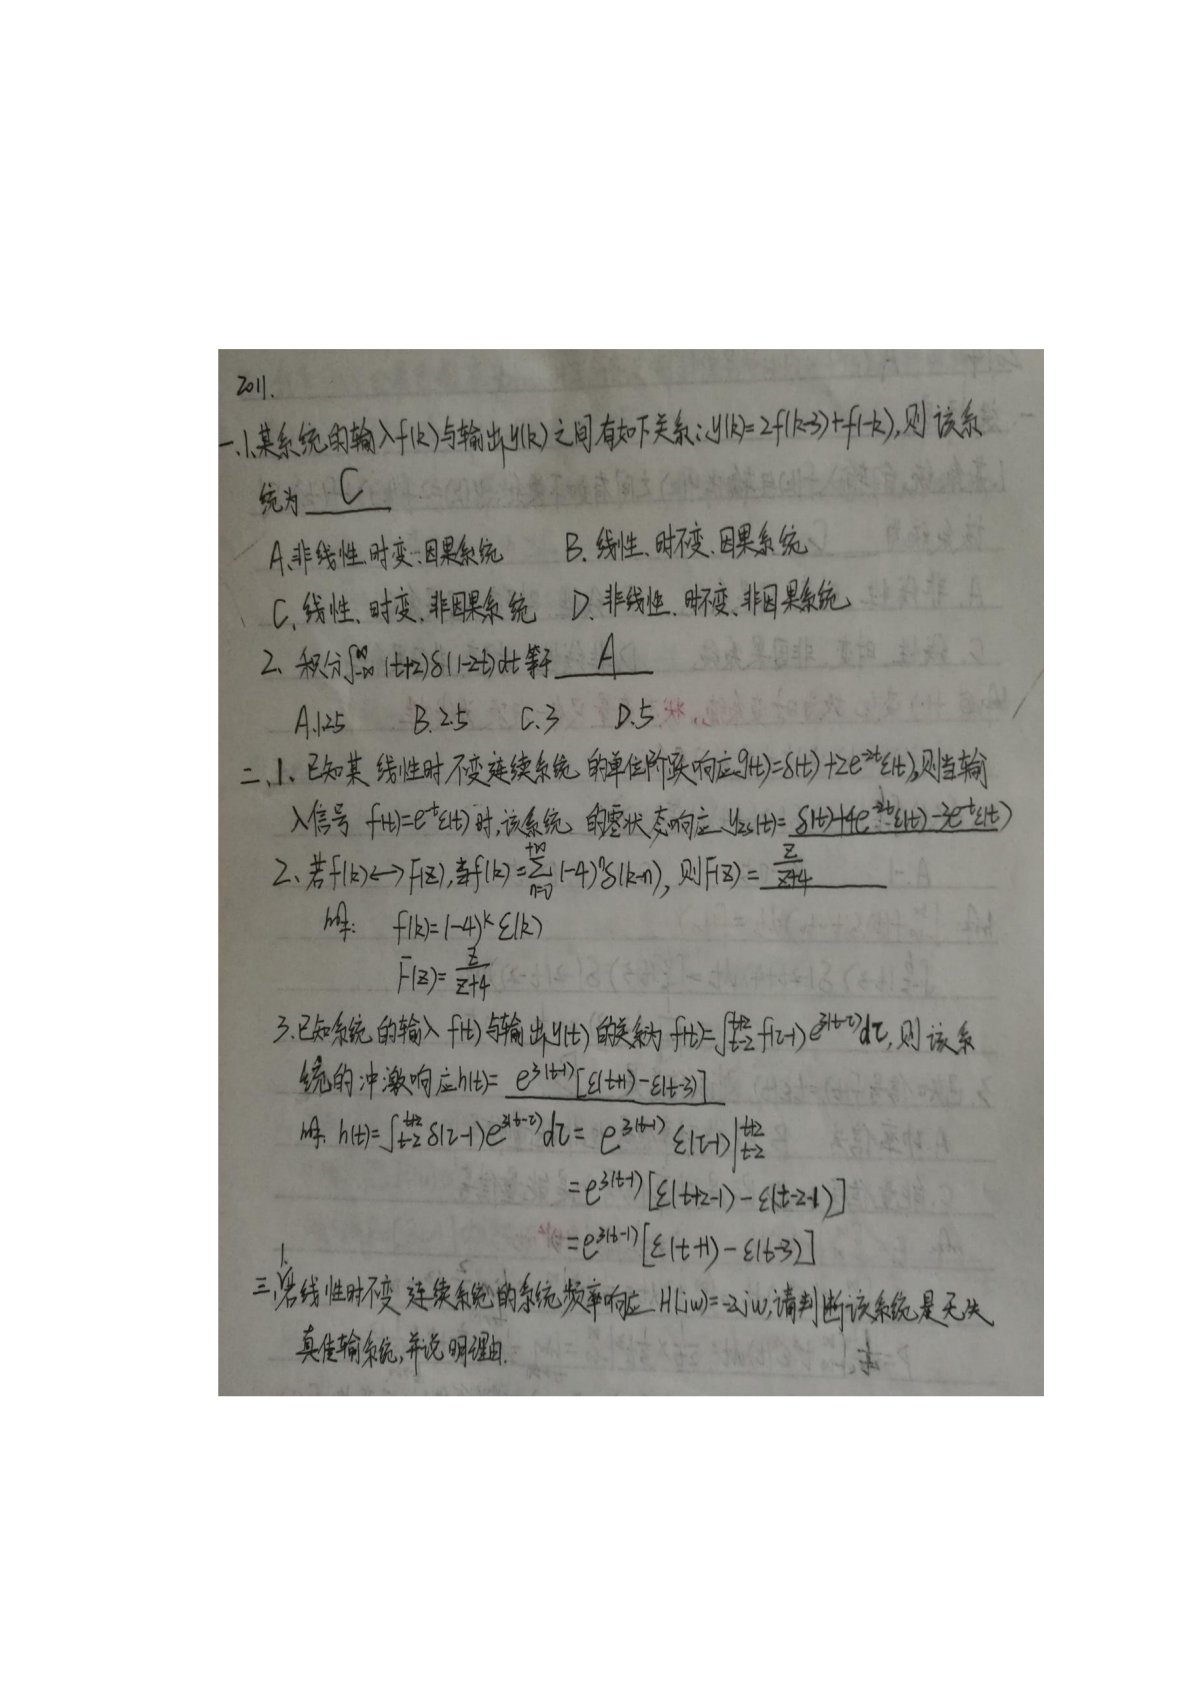 2011.
一.1.某系统的输入f(k)与输出y(k)之间有如下关系:y(k)=2f(k-3)+f(-k),则该系
统为 C
A.非线性.时变.因果系统 B.线性、时不变、因果系统
C.线性、时变、非因果系统 D.非线性、时不变、非因果系统
2、积分∫_{-∞}^{∞}(t+2)δ(1-2t)dt等于 A
A.1.25 B.2.5 C.3 D.5
二、1、已知某线性时不变连续系统的单位阶跃响应g(t)=δ(t)+2e^{-2t}ε(t),则当输
入信号f(t)=e^{-t}ε(t)时,该系统的零状态响应y_{zs}(t)=δ(t)+4e^{-2t}ε(t)-3e^{-t}ε(t)
2、若f(k)↔F(z),当f(k)=∑_{n=0}^{+∞}(-4)^nδ(k-n),则F(z)=z/(z+4)
解: f(k)=(-4)^k ε(k)
F(z)=z/(z+4)
3.已知系统的输入f(t)与输出y(t)的关系为f(t)=∫_{t-2}^{t+2}f(τ-1)e^{3(t-τ)}dτ,则该系
统的冲激响应h(t)=e^{3(t-1)}[ε(t+1)-ε(t-3)]
解. h(t)=∫_{t-2}^{t+2}δ(τ-1)e^{3(t-τ)}dτ=e^{3(t-1)}ε(τ-1)|_{t-2}^{t+2}
=e^{3(t-1)}[ε(t+2-1)-ε(t-2-1)]
=e^{3(t-1)}[ε(t+1)-ε(t-3)]
三、1.若线性时不变连续系统的系统频率响应H(jw)=-2jw,请判断该系统是无失
真传输系统,并说明理由.